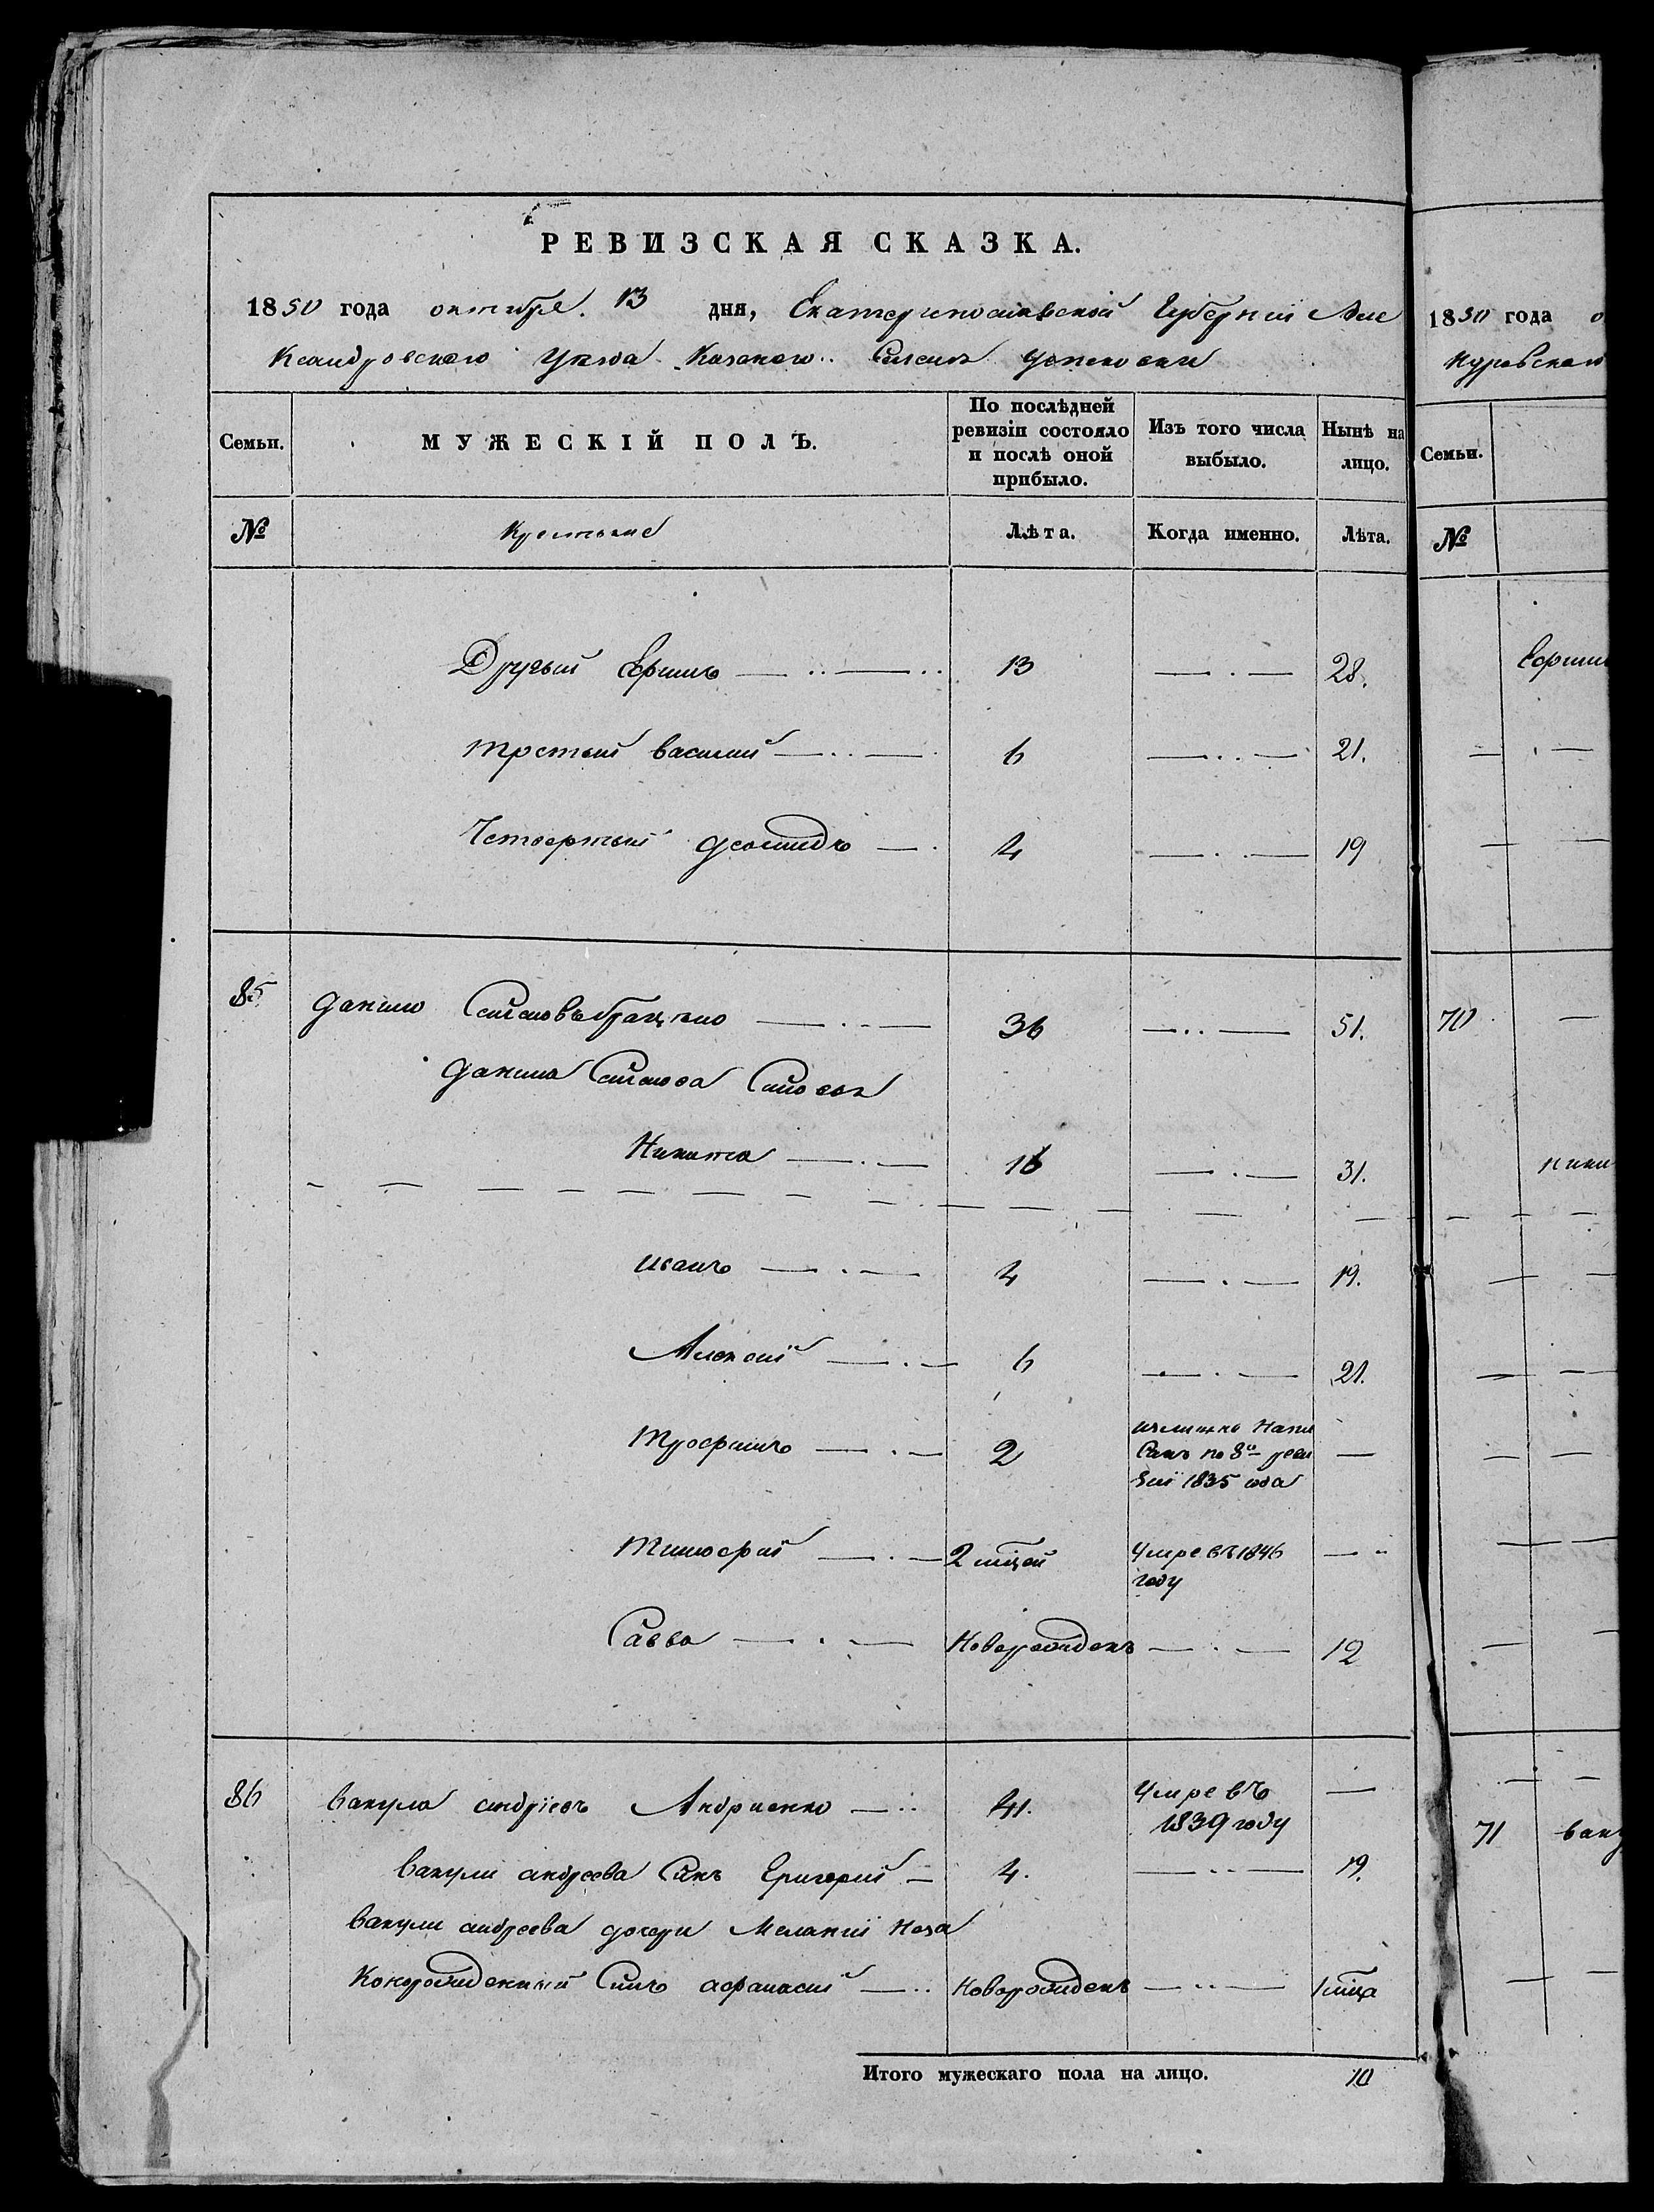 РЕВИЗСКАЯ СКАЗКА.
1850 года октября 13 дня, Екатеринославской Губернии Але
ксандровского Уезда Казеного Селенія Успеновки
Семьи. МУЖЕСКІЙ ПОЛЪ. По послѣдней ревизіи состояло и послѣ оной прибыло. Изъ того числа выбыло. Нынѣ на лицо.
№ Крестьяне Лѣта. Когда именно. Лѣта.
Другый Ефимъ 13 28.
третый василий 6 21.
Четвертый Демидъ 4 19
85 Данило 36 51.
Данила сыновя
Никита 16 31.
иванъ 4 19.
Алексій 6 21.
Трофимъ 2 излишно Напи
санъ по 8й реви
зіи 1835 года
Тимофей 2 мцей Умре въ 1846
году
Савва Новорожденъ 12
86 вакула андріевъ Андриенко 41. Умре въ
1839 году
вакули андреева Синъ Григорий 4. 19.
вакули андреева дочери Меланіи Неза
конорожденный Синъ афанасий Новорожденъ 1 мца
Итого мужескаго пола на лицо. 10
1850 года о
Семьи.
№
70
ники
71 ваку